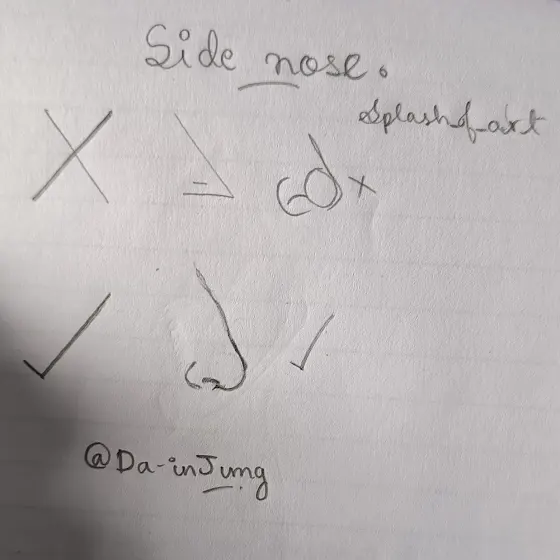 Side nose.
Splash_of_art
@Da-inJung